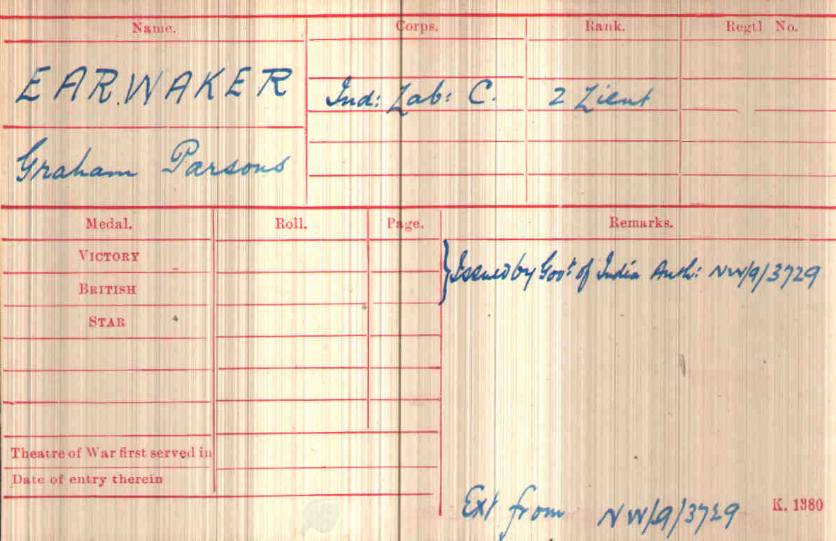 Name. Corps. Rank. Regtl No.
EARWAKER Ind: Lab: C. 2 Lieut
Graham Parsons
Medal. Roll. Page. Remarks.
VICTORY
BRITISH
STAR
} Issued by Govt of India Auth: NW/9/3729
Theatre of War first served in
Date of entry therein
Ext from NW/9/3729 K. 1380